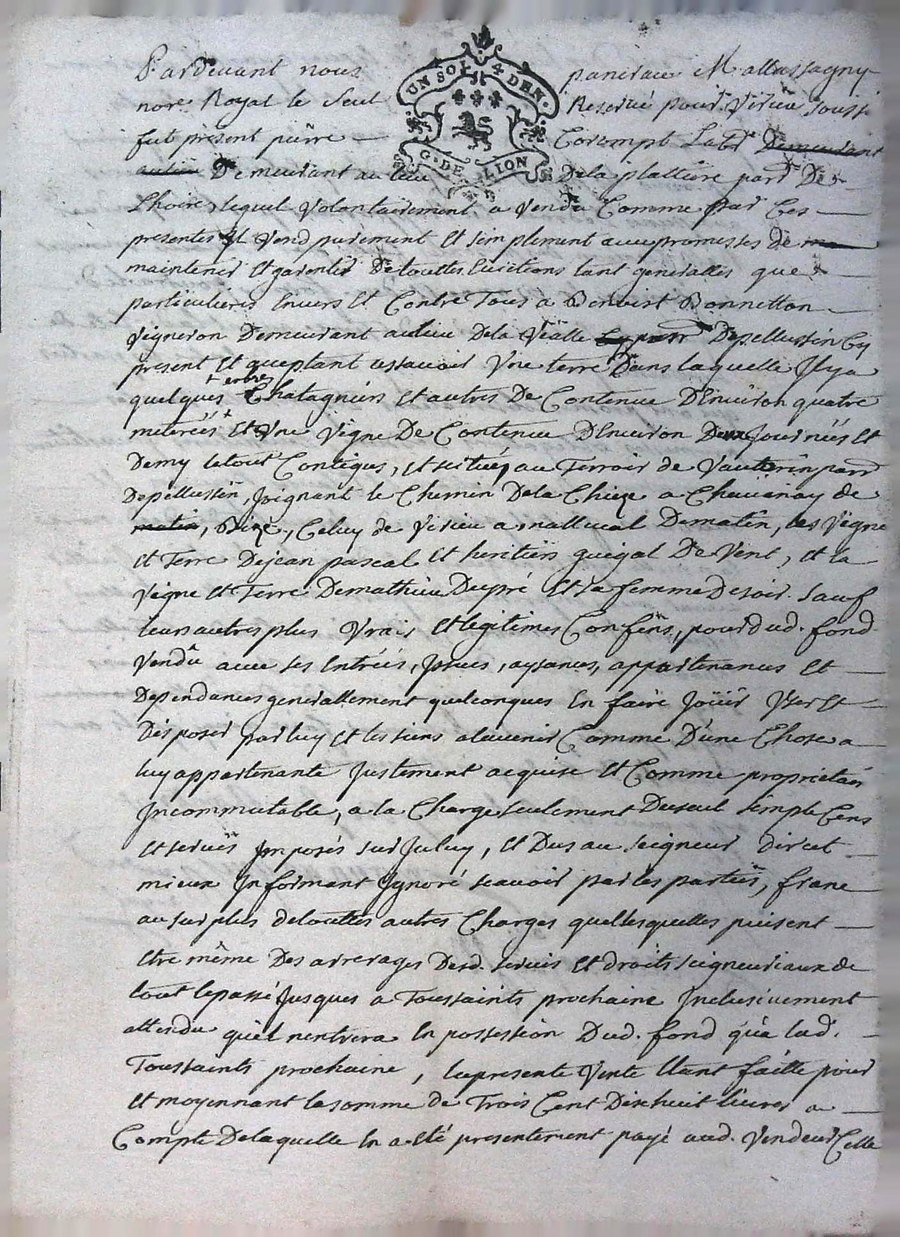 UN SOL 4 DEN.
G. DE LION
Pardevant nous pancrace Mallassagny
nore Royal le Seul Reservé pour Virieu soussi
fut present pierre Corompt Labr Demeurant
Demeurant au lieu Dela plattiere parr De
Lhoire, lequel volontairement a vendu Comme par Ces
presentes Il vend purement et simplement avec promesses de
maintenir et garentir De touttes Evictions tant generalles que
particulieres Envers et Contre Tous a Benoist Bonnetton
vigneron Demeurant au lieu Dela Vialle Depellussin Cy
present et aceptant assavoir Une terre Dans laquelle Il y a
quelques + Chatagniers et autres De Contenue D'Environ quatre
+ arbres
meterées + et Une vigne De Contenue D'Environ Deux Journées et
Demy le tout Contigus, et scitués au Terroir de Vauterin parr
Depellussin, Joignant le Chemin Dela Chize a Chavanay de
matin, Bize, Celuy de Virieu a mallucal Dematin, les Vigne
et Terre Dejean pascal et heritiers guigal De Vent, et la
vigne et Terre Demathieu Dupré et sa femme Desoir. Sauf
leurs autres plus vrais et legitimes Confins, pour dud. fond
vendu avec ses Entrées, Issues, aysances, appartenances et
Dependances generallement quelconques En faire Joüir User et
Disposer par luy et les siens a l'avenir Comme D'une Chose a
luy appartenante Justement acquise et Comme proprietaire
Incommutable, a la Charge seulement Du seul simple Cens
et servis Imposés sur Iceluy, et Dus au seigneur direct
mieux Informant Ignoré scavoir par les parties, franc
au surplus de touttes autres Charges quellesquelles puisent
etre même Des arrerages Desd. servis et droits seigneuriaux de
tout lepassé Jusques a Toussaints prochaine Inclusivement
attendu qu'il n'entrera En possession Dud. fond qu'a lad.
Toussaints prochaine, la presente Vente Etant faitte pour
et moyennant la somme de Trois Cent Dixhuit livres a
Compte De laquelle En a eté presentement payé aud. vendeur Celle